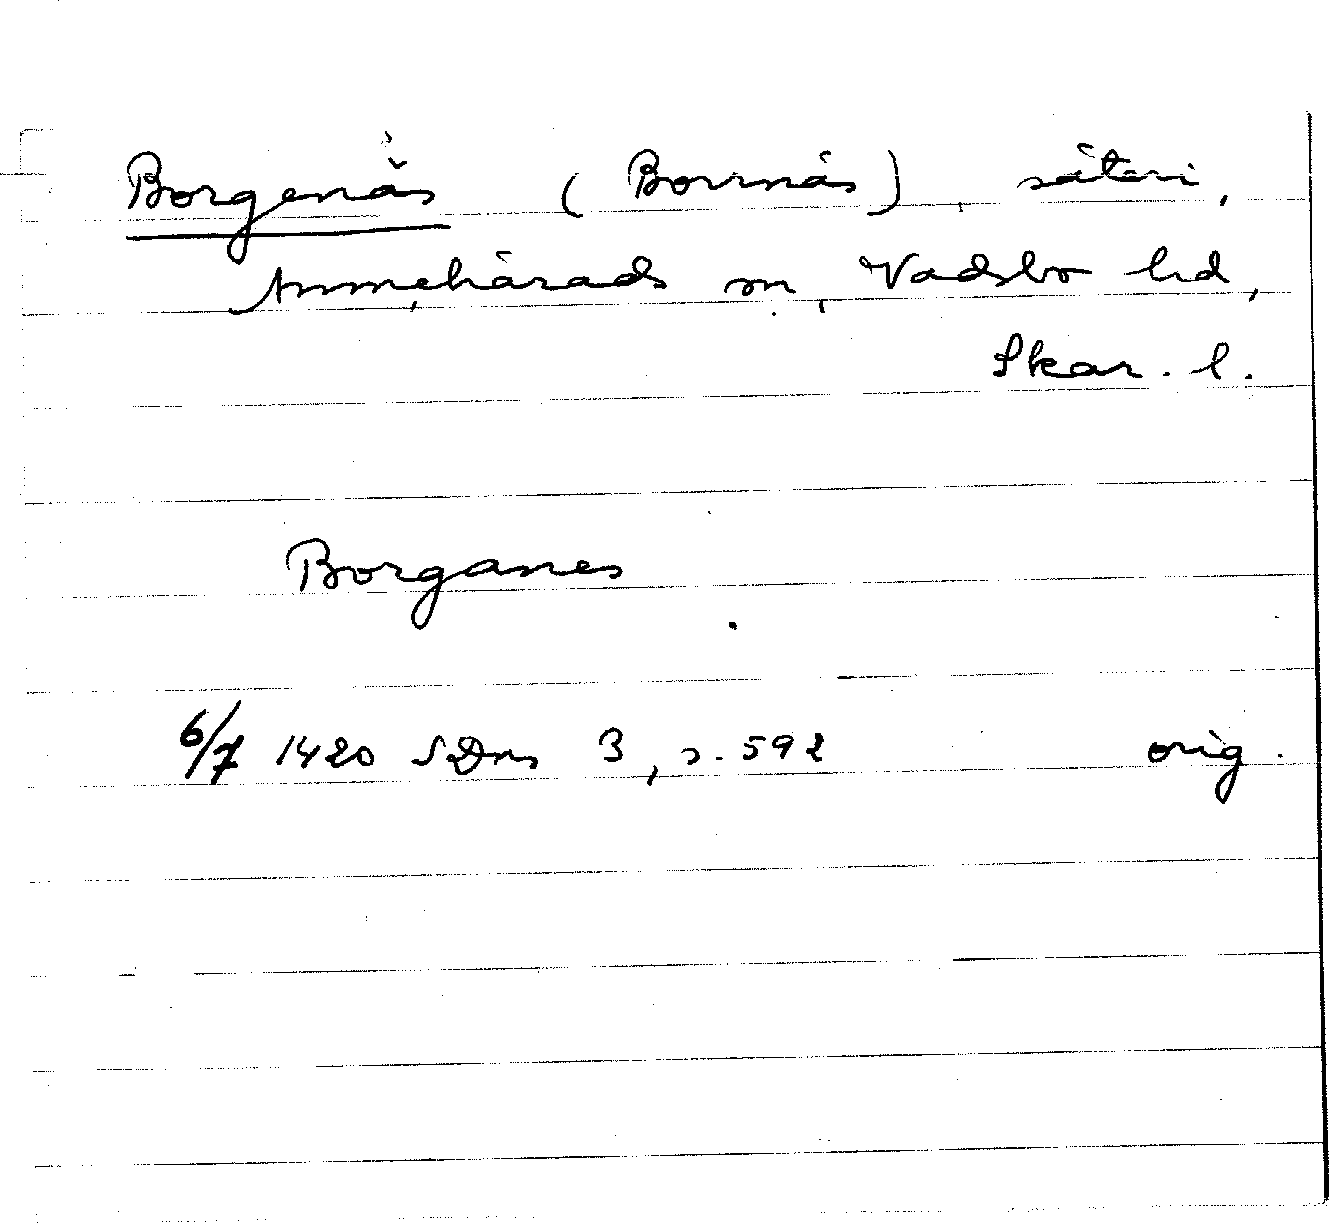 Borgenäs (Borrnäs) säteri,
Amnehärads sn, Vadsbo hd,
Skar. l.
Borganes
6/7 1420 SDns 3, s. 592 orig.